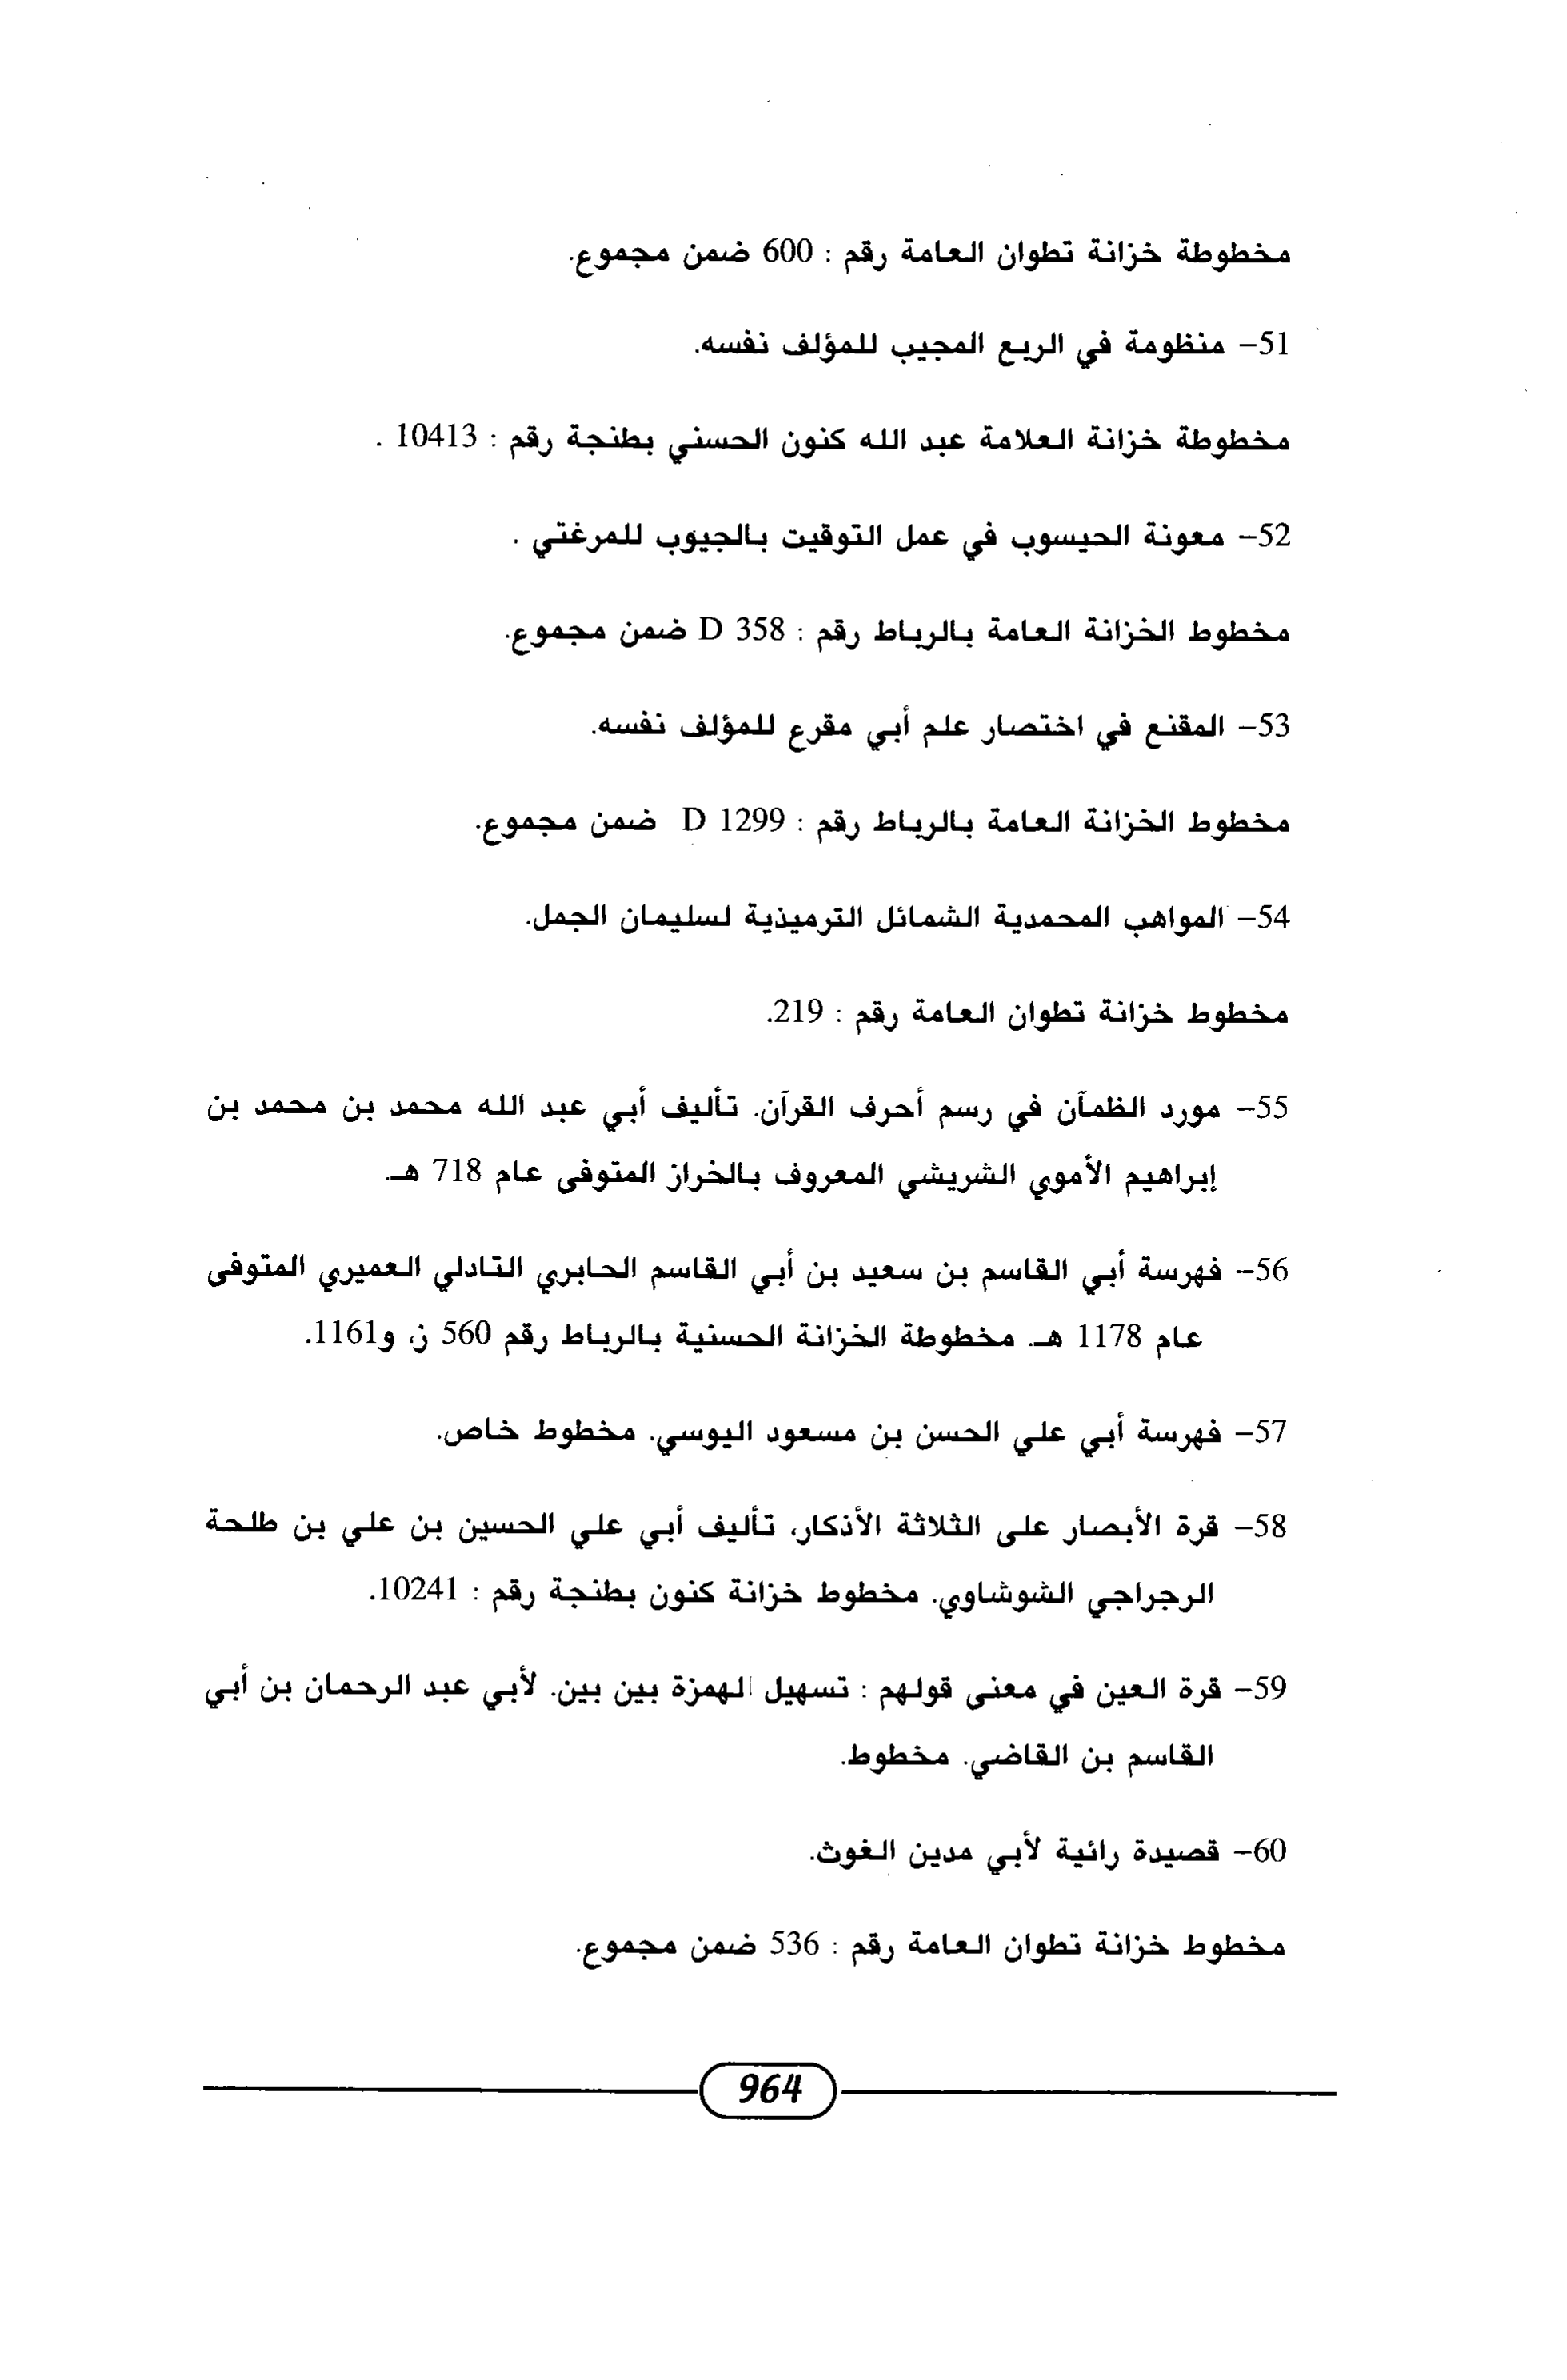 مخطوطة خزانة تطوان العامة رقم : 600 ضمن مجموع.
51- منظومة في الربع المجيب للمؤلف نفسه.
مخطوطة خزانة العلامة عبد الله كنون الحسني بطنجة رقم : 10413 .
52- معونة الحيسوب في عمل التوقيت بالجيوب للمرغتي .
مخطوط الخزانة العامة بالرباط رقم : 358 D ضمن مجموع.
53- المقنع في اختصار علم أبي مقرع للمؤلف نفسه.
مخطوط الخزانة العامة بالرباط رقم : 1299 D ضمن مجموع.
54- المواهب المحمدية الشمائل الترميذية لسليمان الجمل.
مخطوط خزانة تطوان العامة رقم : 219.
55- مورد الظمآن في رسم أحرف القرآن. تأليف أبي عبد الله محمد بن محمد بن
إبراهيم الأموي الشريشي المعروف بالخراز المتوفى عام 718 هـ.
56- فهرسة أبي القاسم بن سعيد بن أبي القاسم الحابري التادلي العميري المتوفى
عام 1178 هـ. مخطوطة الخزانة الحسنية بالرباط رقم 560 ن، و1161.
57- فهرسة أبي علي الحسن بن مسعود اليوسي. مخطوط خاص.
58- قرة الأبصار على الثلاثة الأذكار، تأليف أبي علي الحسين بن علي بن طلحة
الرجراجي الشوشاوي. مخطوط خزانة كنون بطنجة رقم : 10241.
59- قرة العين في معنى قولهم : تسهيل الهمزة بين بين. لأبي عبد الرحمان بن أبي
القاسم بن القاضي. مخطوط.
60- قصيدة رائية لأبي مدين الغوث.
مخطوط خزانة تطوان العامة رقم : 536 ضمن مجموع.
964